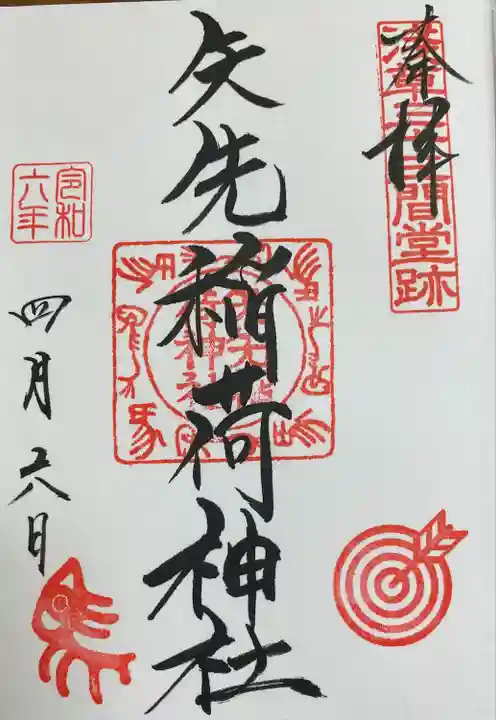 奉拝
浅草三十三間堂跡
矢先稲荷神社
令和
六年
四月六日